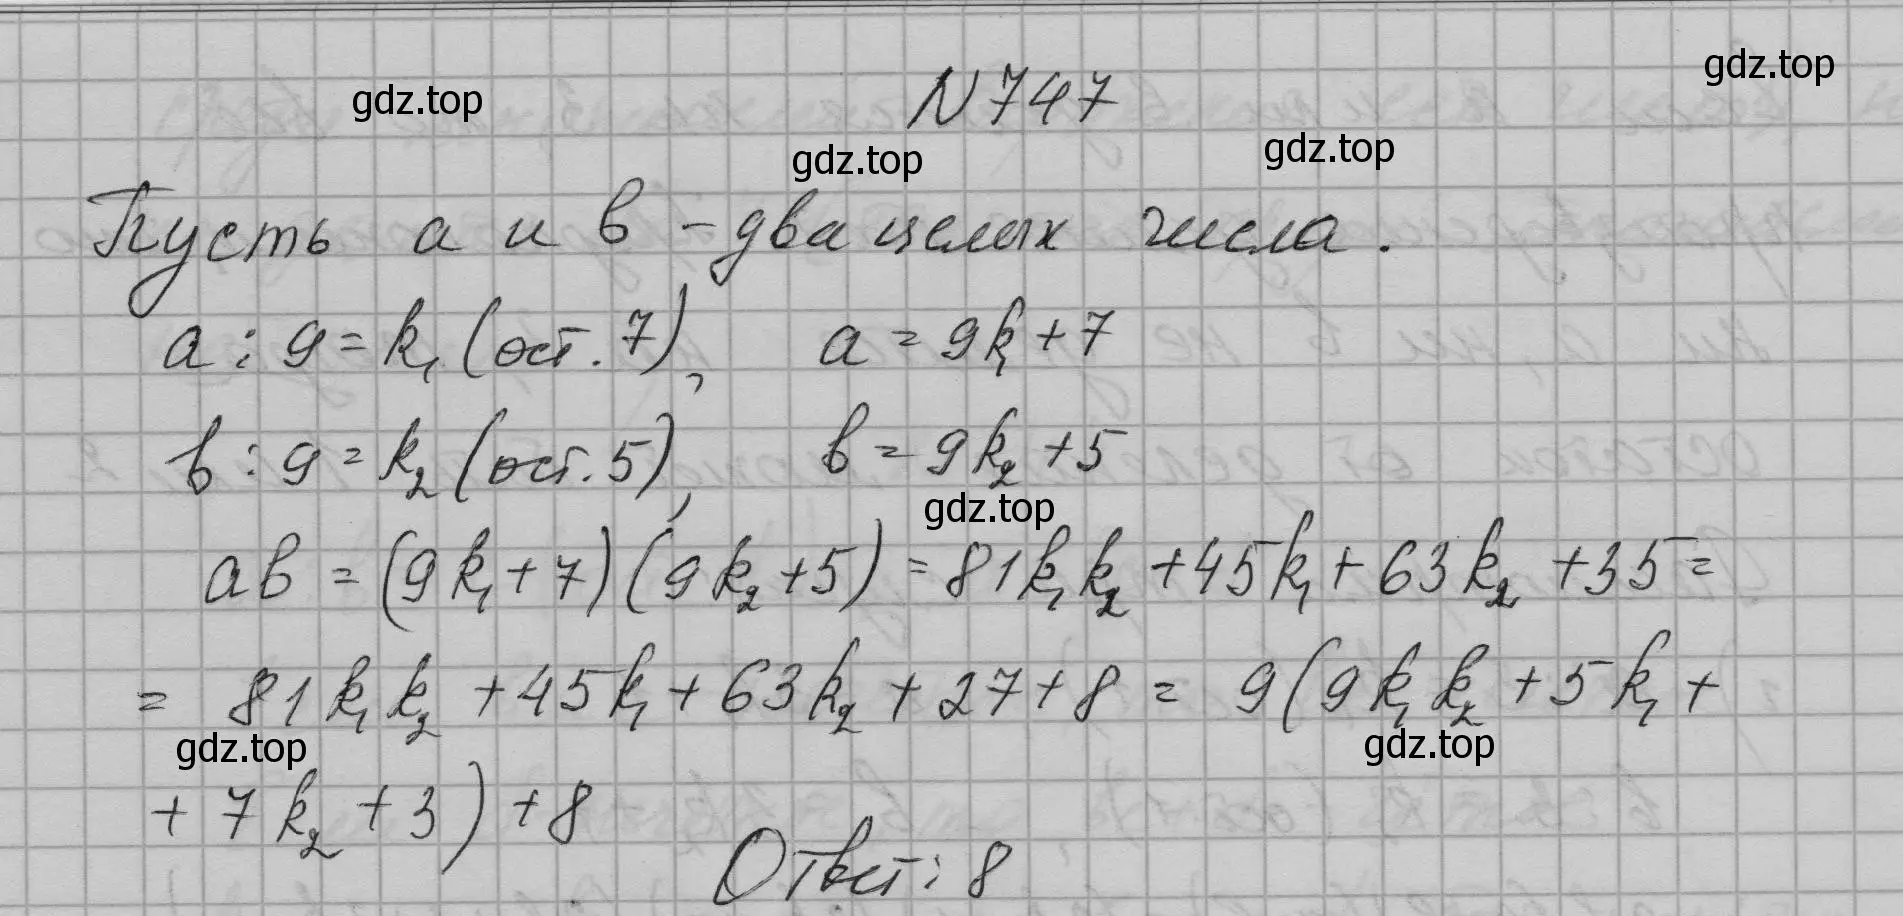 gdz.top
N 747
gdz.top
gdz.top
gdz.top
Пусть a и b – два целых числа.
a : 9 = k₁ (ост. 7), a = 9k₁ + 7
b : 9 = k₂ (ост. 5), b = 9k₂ + 5
gdz.top
ab = (9k₁ + 7)(9k₂ + 5) = 81k₁k₂ + 45k₁ + 63k₂ + 35 =
= 81k₁k₂ + 45k₁ + 63k₂ + 27 + 8 = 9(9k₁k₂ + 5k₁ +
gdz.top
gdz.top
+ 7k₂ + 3) + 8
Ответ: 8